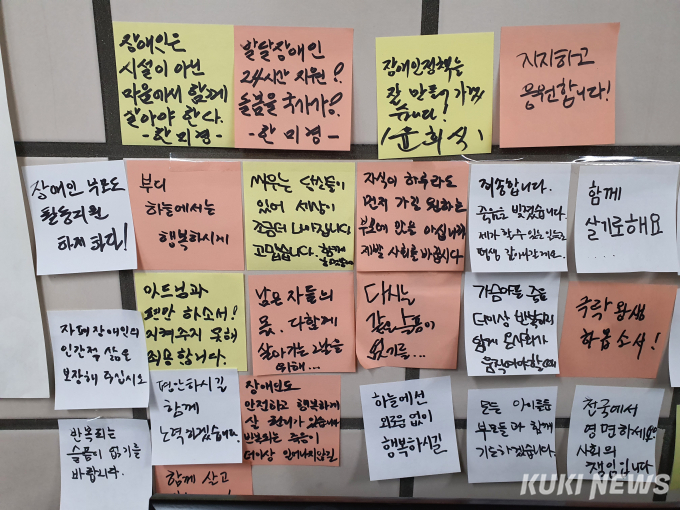 장애인은
시설이 아닌
마을에서 함께
살아야 한다.
-한미경-
발달장애인
24시간 지원?
돌봄을 국가가?
-한미경-
장애인정책는
잘 만들어 가겠
습니다!
(윤희식)
지지하고
응원합니다!
장애인 부모도
활동지원
하게 하라!
부디
하늘에서는
행복하시게
싸우는
있어 세상이
조금더 나아집니다
고맙습니다. 함께
자식이 하루라도
먼저 가길 원하는
부모의 맘을 아십니까
제발 사회를 바꿉시다
죄송합니다.
죽음로 빚졌습니다.
제가 할 수 있는 일들로
평생 갚아나갈게요.
함께
살기로해요
....
자폐장애인의
인간적 삶은
보장해 주십시오
아드님과
편안 하소서!
지켜주지 못해
죄송합니다.
남은 자들의
몫. 다함께
살아가는 그날을
위해...
다시는
같은 아픔이
없기를...
가슴아픈 죽음
더이상 반복되지
않게 온사회가
움직여야합니다
극락왕생
하옵소서!
반복되는
슬픔이 없기를
바랍니다.
평안하시길
함께
노력하겠습니다.
함께 살고
장애인도
안전하고 행복하게
살 권리가 있습니다
반복되는 죽음이
더이상 일어나지않길
하늘에선
외로움 없이
행복하시길
모든 아이들을
부모들과 함께
기도하겠습니다.
천국에서
영면하세요
사회의
책임입니다
KUKI NEWS